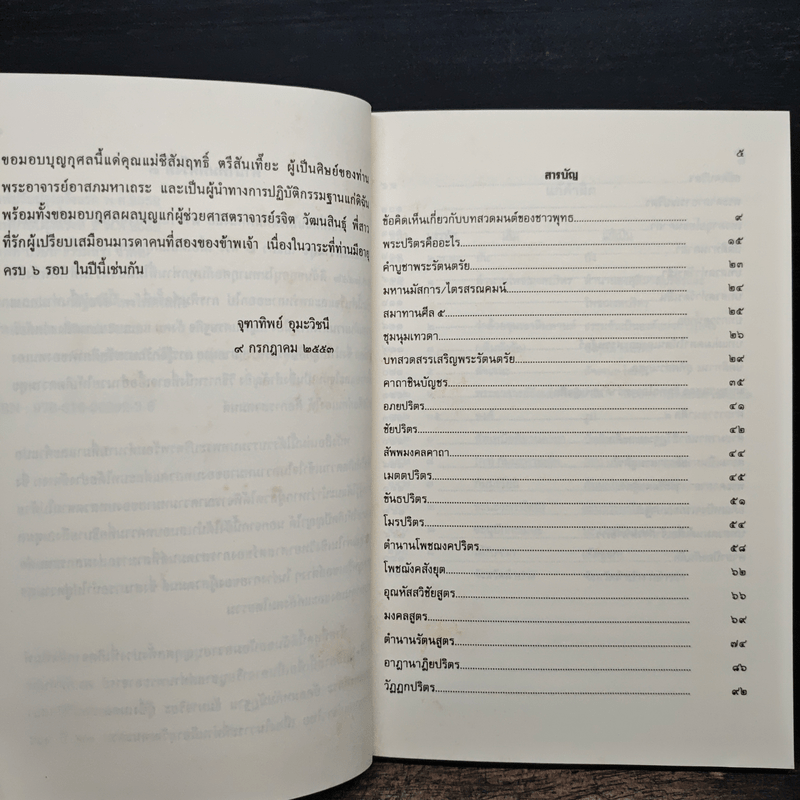 ขอมอบบุญกุศลนี้แด่คุณแม่ชีสัมฤทธิ์ ตรีสันเทียะ ผู้เป็นศิษย์ของท่าน
พระอาจารย์อาสภมหาเถระ และเป็นผู้นำทางการปฏิบัติกรรมฐานแก่ดิฉัน
พร้อมทั้งขอมอบกุศลผลบุญแก่ผู้ช่วยศาสตราจารย์รจิต วัฒนสินธุ์ พี่สาว
ที่รักผู้เปรียบเสมือนมารดาคนที่สองของข้าพเจ้า เนื่องในวาระที่ท่านมีอายุ
ครบ ๖ รอบ ในปีนี้เช่นกัน
จุฑาทิพย์ อุมะวิชนี
๙ กรกฎาคม ๒๕๕๓
๕
สารบัญ
ข้อคิดเห็นเกี่ยวกับบทสวดมนต์ของชาวพุทธ................................๙
พระปริตรคืออะไร................................๑๕
คำบูชาพระรัตนตรัย................................๒๓
มหานมัสการ/ไตรสรณคมน์................................๒๔
สมาทานศีล ๕................................๒๕
ชุมนุมเทวดา................................๒๖
บทสวดสรรเสริญพระรัตนตรัย................................๒๙
คาถาชินบัญชร................................๓๕
อภยปริตร................................๔๑
ชัยปริตร................................๔๒
สัพพมงคลคาถา................................๔๔
เมตตปริตร................................๔๕
ขันธปริตร................................๕๑
โมรปริตร................................๕๔
ตำนานโพชฌงคปริตร................................๕๘
โพชฌังคสังยุต................................๖๒
อุณหัสสวิชัยสูตร................................๖๖
มงคลสูตร................................๖๙
ตำนานรัตนสูตร................................๗๔
อาฏานาฏิยปริตร................................๘๖
วัฏฏกปริตร................................๙๒